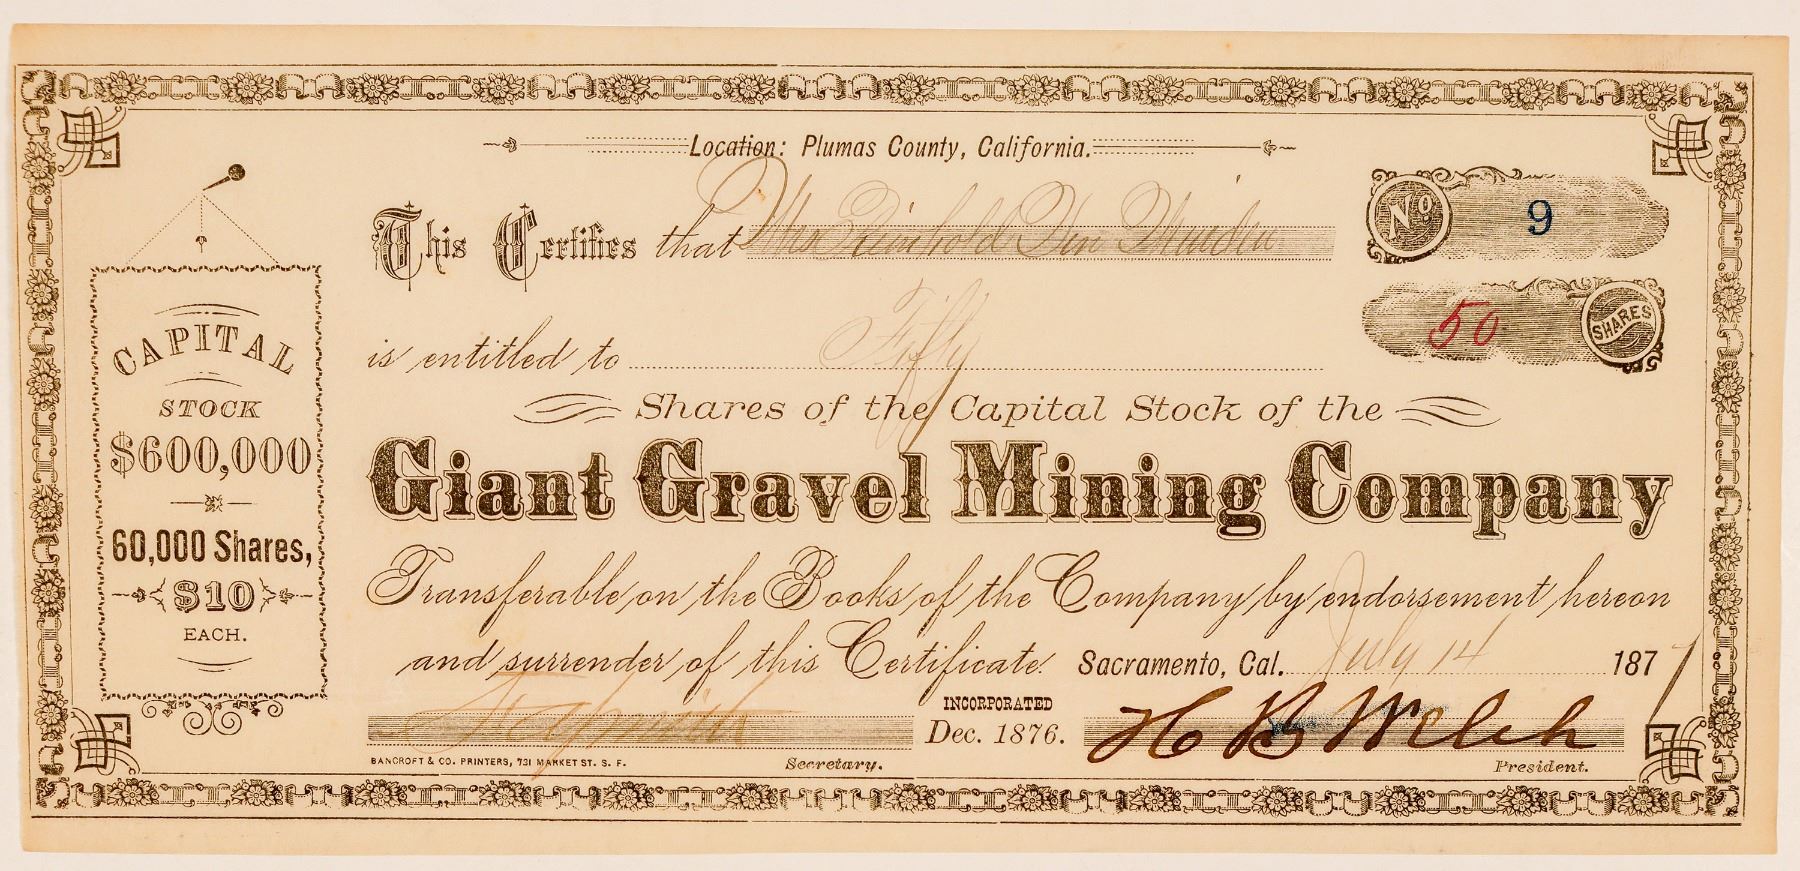 Location: Plumas County, California.
This Certifies that Mrs Reinhold
No 9
is entitled to Fifty
50 SHARES
Shares of the Capital Stock of the
Giant Gravel Mining Company
Transferable on the Books of the Company by endorsement hereon
and surrender of this Certificate. Sacramento, Cal. July 14 1877
INCORPORATED
Dec. 1876.
H B Welch
BANCROFT & CO. PRINTERS, 731 MARKET ST. S. F.
Secretary.
President.
CAPITAL
STOCK
$600,000
60,000 Shares,
$10
EACH.